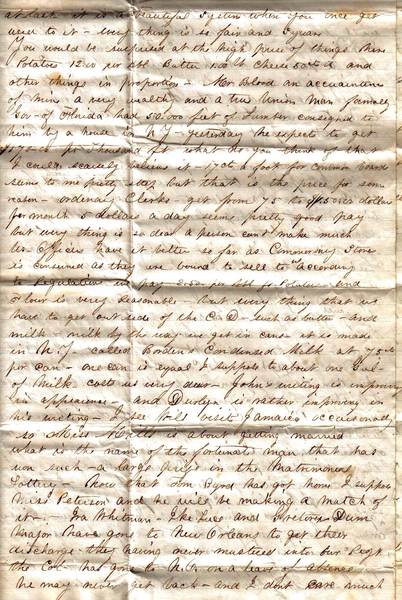 at last it is a beautiful System when you once get
used to it - every thing is so fair and Square
You would be surprised at the high price of things here
Potatoes 12.00 per bbl Butter Cheese 50cts &
other things in proportion - Mr Blood an accquaintence
of mine a very wealthy and a true Union man formerly
of Florida had 50.000 feet of Lumber consigned to
him by a house in N.Y. - yesterday he expects to get
per Thousand ft what do you think of that
I could scarcely believe it - 17cts a foot for common board
seems to me pretty steep but that is the price for some
reason - ordinary Clerks get from 75 to dollars
per month 5 dollars a day seems pretty good pay
but every thing is so dear a person cant make much
We Officers have it better so far as Commissary Stores
is consumed as they are bound to sell to according
to Regulation we pay 2.50 per bbl for Potatoes and
flour is very reasonable - but every thing that we
have to get out side of the C.D. such as butter - and
milk - milk by the way we get in cans - it is made
in N.Y. called Borden's Condensed Milk at 75cts
per can - one can is equal I suppose to about one Gal
of Milk costs us very dear - John's writing is improving
in appearance - and Dwyn is rather improving in
his writing - I see Bill visit Jamaica occasionally
- so Miss is about getting married
what is the name of the fortunate man that has
won such a large prize in the Matrimonial
Lottery - Now that Sam Byrd has got home I suppose
Miss Peterson and he will be making a match of
it - Ira Whitman - Ike and Dum
Major have gone to New Orleans to get their
discharge - they having never mustered into our Regt
the Col- has gone to N.O. on a leave of absence
he may never get back - and I dont care much